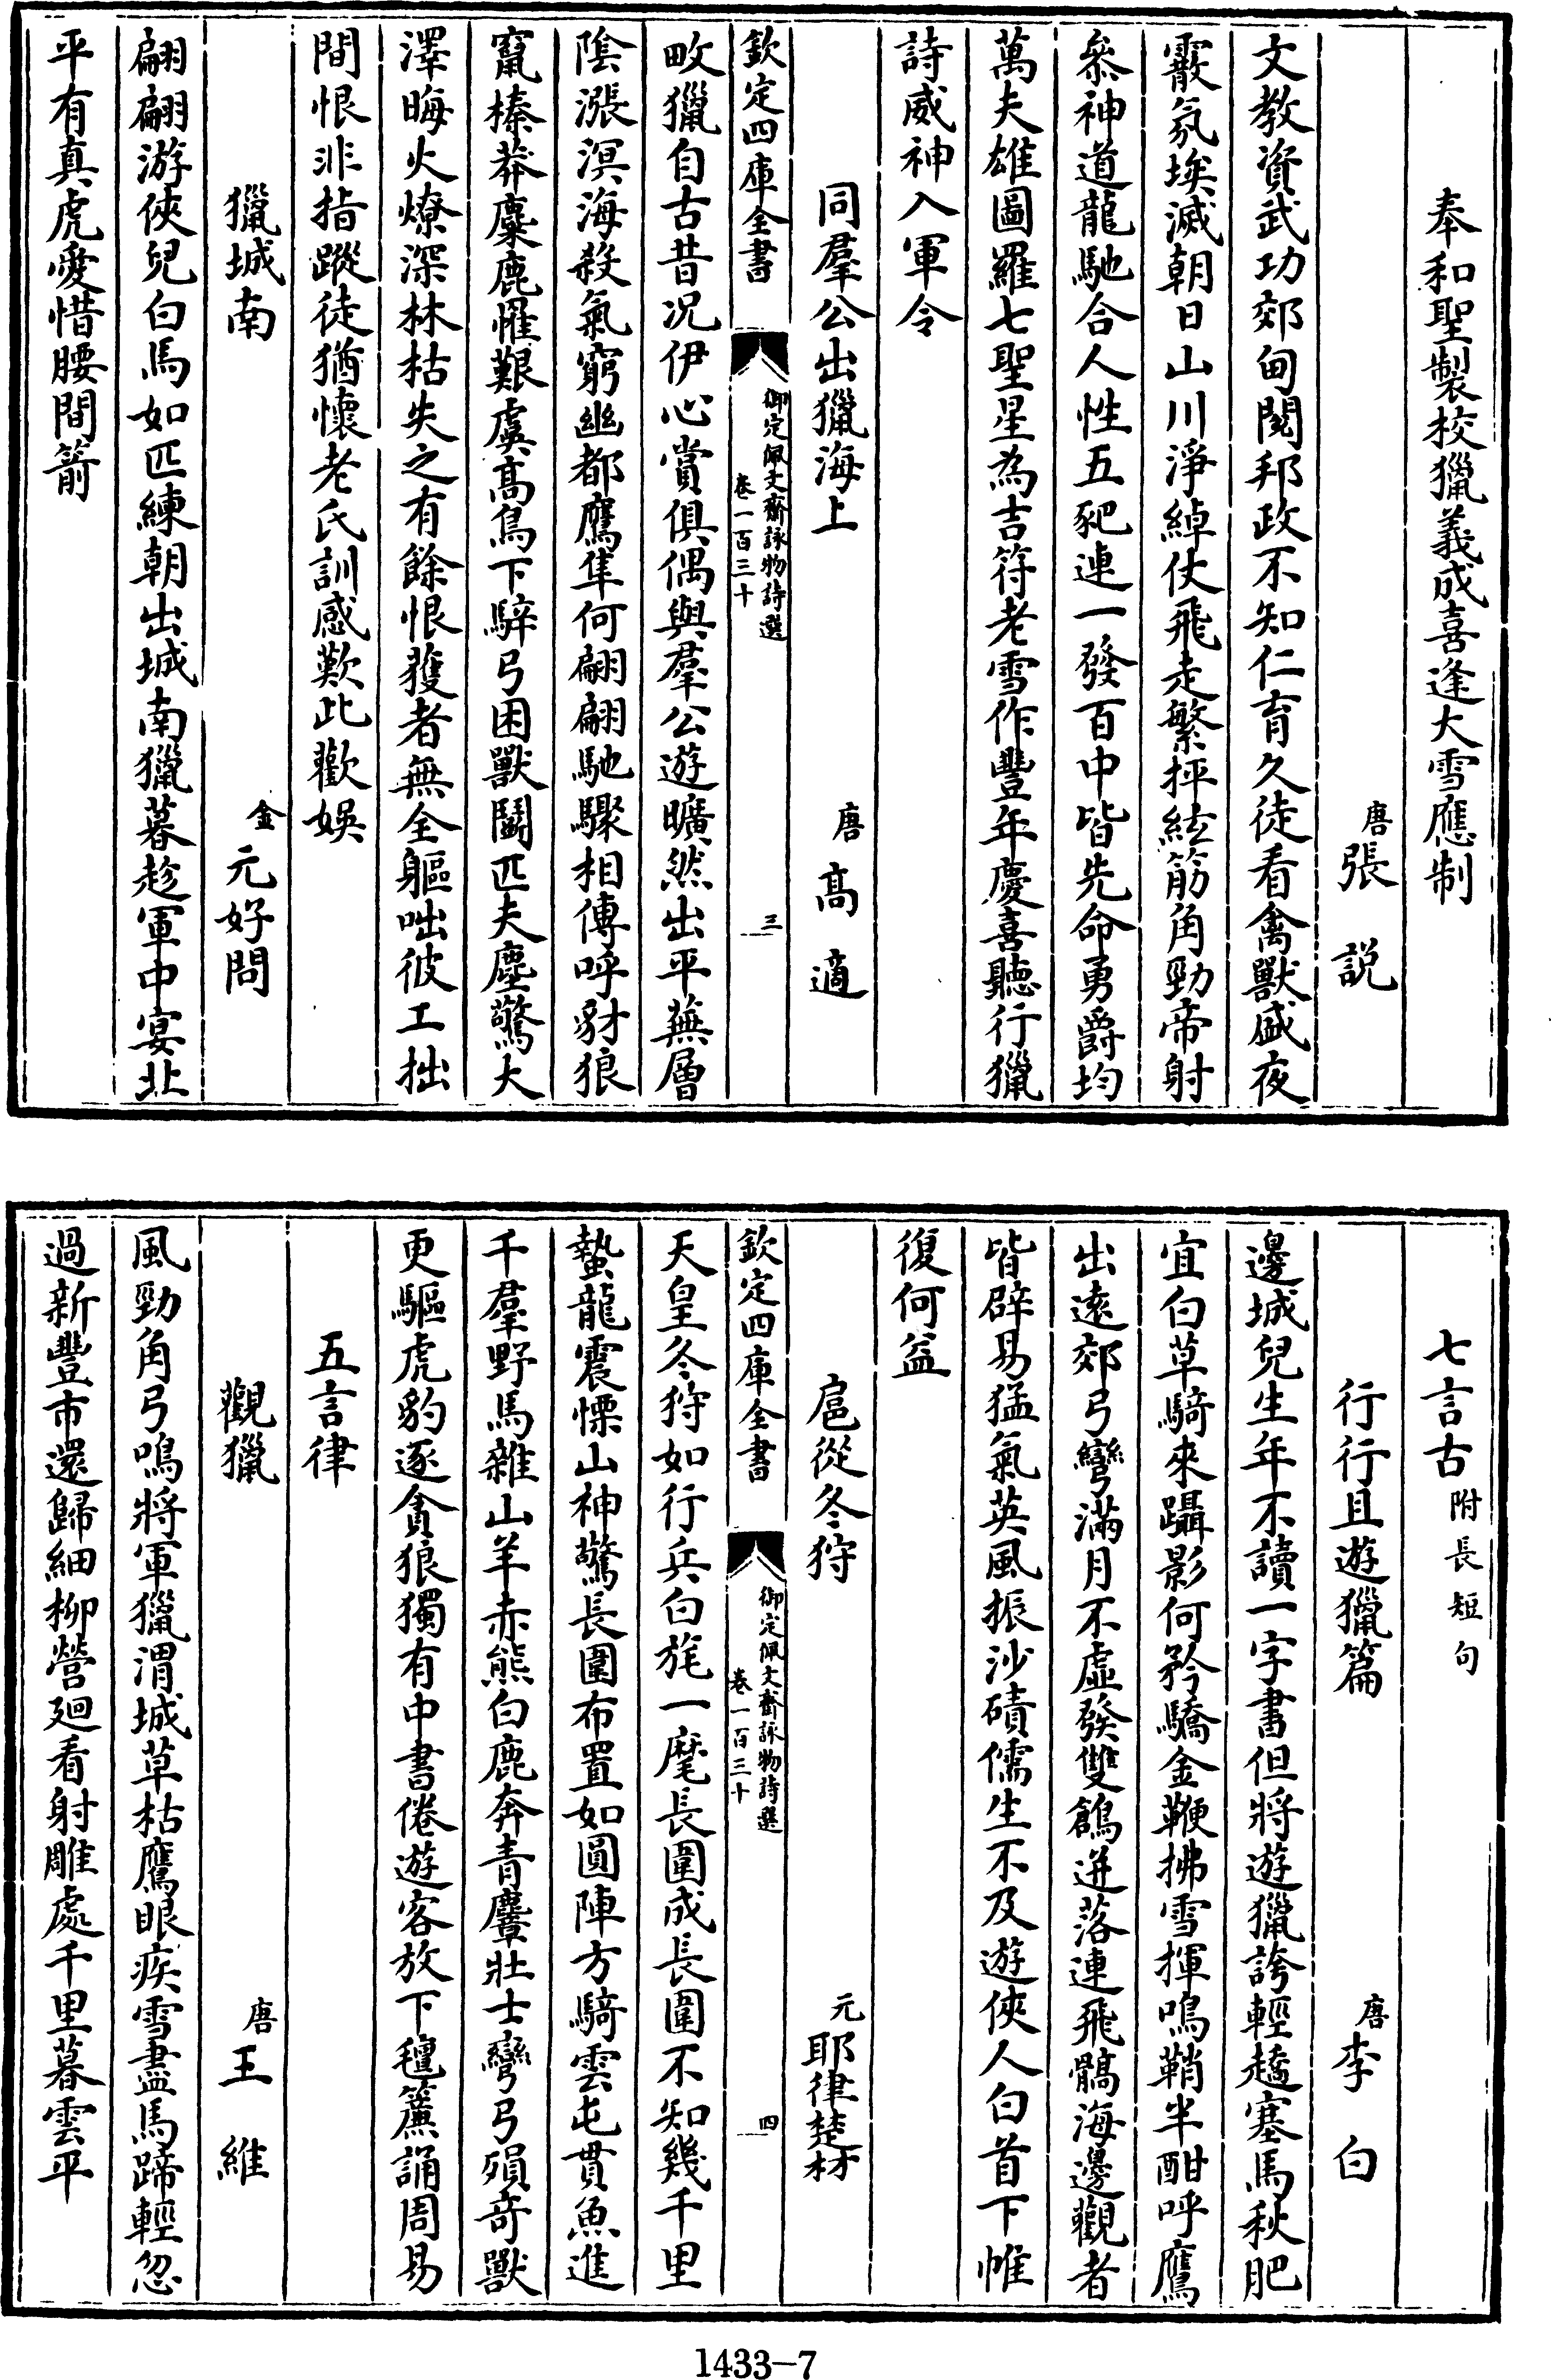 奉和聖製校獵義成喜逢大雪應制
唐張說
文教資武功郊甸閱邦政不知仁育久徒看禽獸盛夜
霰氛埃滅朝日山川淨綽仗飛走繁抨絃筋角勁帝射
叅神道龍馳合人性五豝連一發百中皆先命勇爵均
萬夫雄圖羅七聖星為吉符老雪作豐年慶喜聽行獵
詩威神入軍令
同羣公出獵海上
唐高適
欽定四庫全書
御定佩文齋詠物詩選
卷一百三十
三
畋獵自古昔况伊心賞俱偶與羣公遊曠然出平蕪層
陰漲溟海殺氣窮幽都鷹隼何翩翩馳驟相傳呼豺狼
竄榛莽麋鹿惟艱虞髙鳥下騂弓困獸鬭匹夫塵驚大
澤晦火燎深林枯失之有餘恨獲者無全軀咄彼工拙
間恨非指蹤徒猶懷老氏訓感歎此歡娛
獵城南
金元好問
翩翩游俠兒白馬如匹練朝出城南獵暮趁軍中宴北
平有真虎愛惜腰間箭
七言古附長短句
行行且遊獵篇
唐李白
邊城兒生年不讀一字書但將遊獵誇輕趫塞馬秋肥
宜白草騎來躡影何矜驕金鞭拂雪揮鳴鞘半酣呼鷹
出遠郊弓彎滿月不虛發雙鶬迸落連飛髇海邊觀者
皆辟易猛氣英風振沙磧儒生不及遊俠人白首下帷
復何益
扈從冬狩
元耶律楚材
欽定四庫全書
御定佩文齋詠物詩選
卷一百三十
四
天皇冬狩如行兵白旄一麾長圍成長圍不知幾千里
蟄龍震慄山神驚長圍布置如圓陣方騎雲屯貫魚進
千羣野馬雜山羊赤熊白鹿奔青麞壯士彎弓殞奇獸
更驅虎豹逐貪狼獨有中書倦遊客放下氊簾誦周易
五言律
觀獵
唐王維
風勁角弓鳴將軍獵渭城草枯鷹眼疾雪盡馬蹄輕忽
過新豐市還歸細柳營廻看射雕處千里暮雲平
1433-7